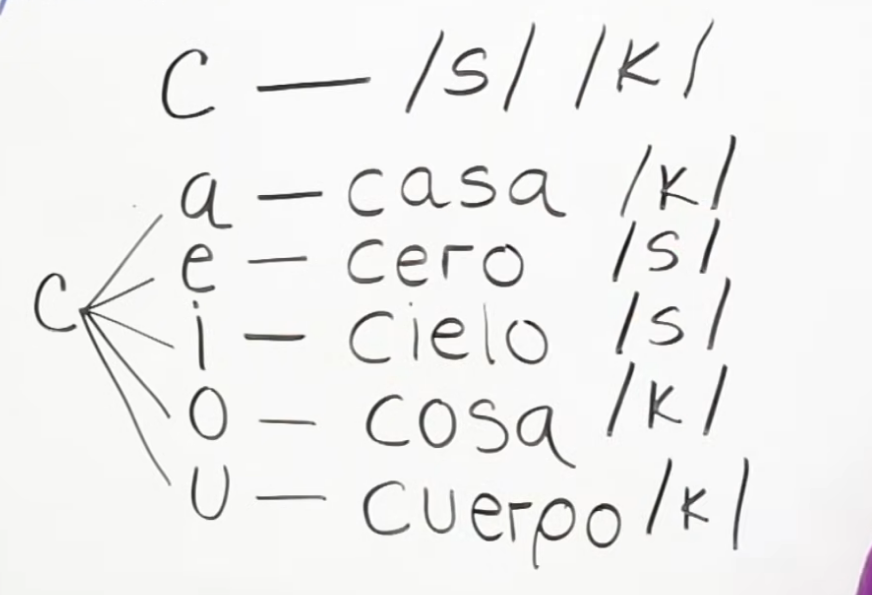 C — /s/ /k/
a — casa /k/
e — cero /s/
C i — cielo /s/
o — cosa /k/
u — cuerpo /k/